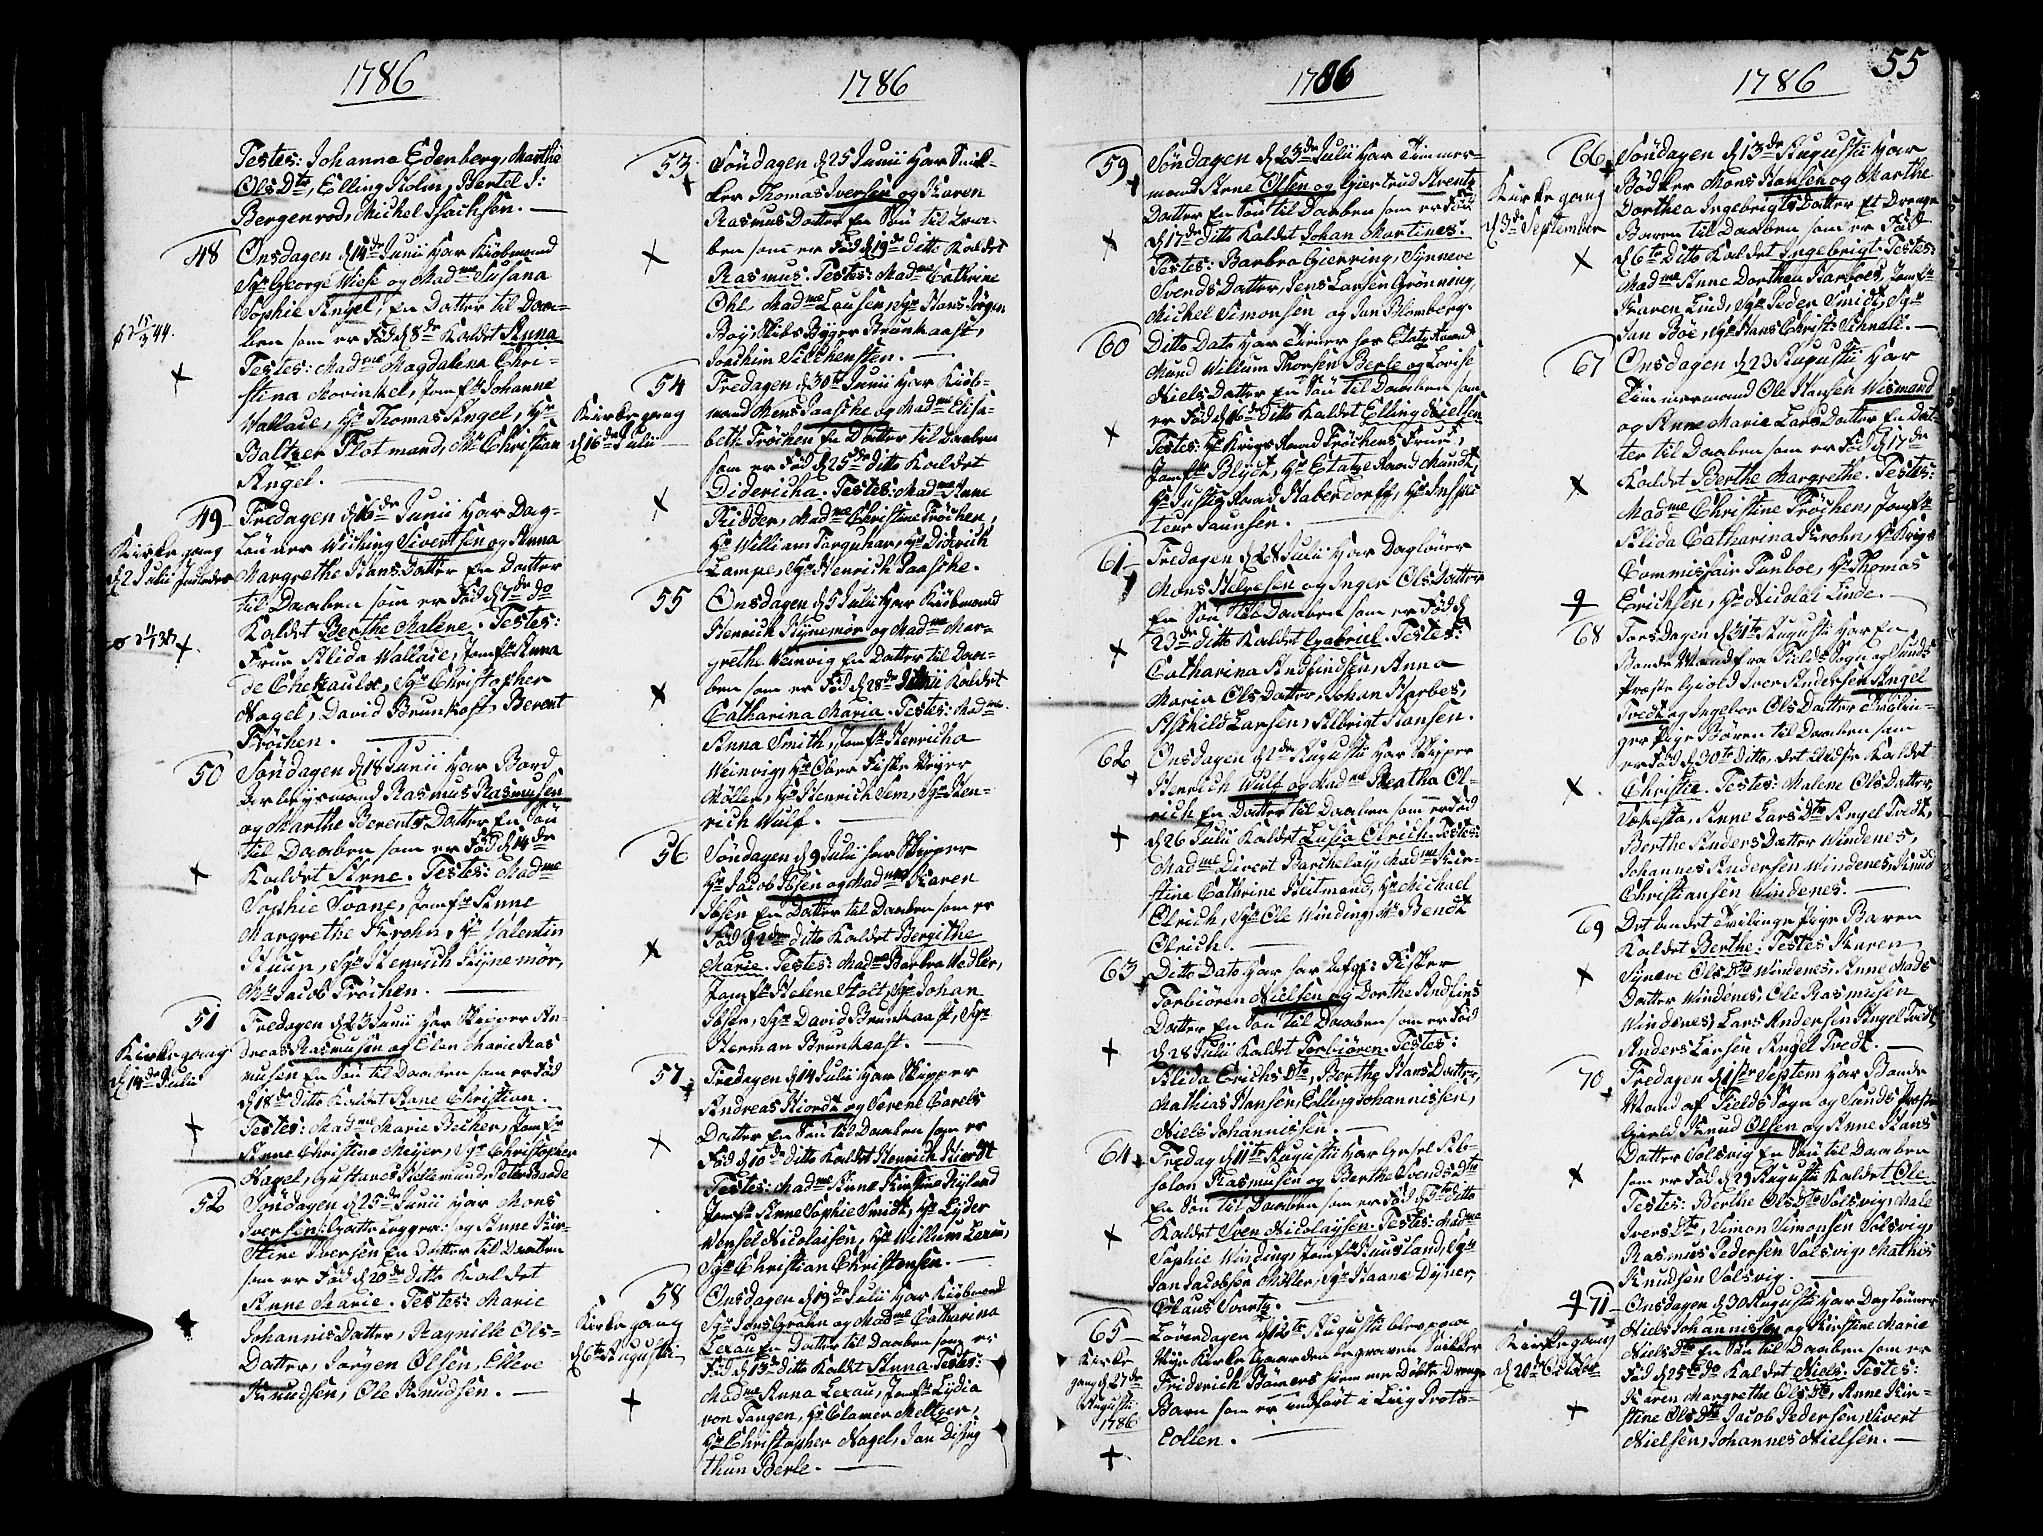 1786
Testes: Johanna Edenberg, Marthe
Ols Dtr, Elling Holm, Bertel J:
Bergenrod, Michel Isachsen.
48
Onsdagen d 14de Junii har Kiøbmand
Sr George Wiese og Madme Susana
Sophie Angel, En Datter til Daa-
ben som er Fød d 8de Kaldet Anna
Testes: Madme Magdalena Chri-
stina Morinkel, Jomfr Johanne
Wallace, Hr Thomas Angel, Hr
Baltzer Flotmand, Mr Christian
Angel.
49
Kirkegang
d 2 Julii
Fredagen d 16de Junii har Dag-
Lønner Wiching Sivertsen og Anna
Margrethe Hans Datter En Datter
til Daaben som er Fød d 7de do
Kaldet Berthe Malene. Testes:
Frue Alida Wallace, Jomfr Anna
de Chezaulx, Sr Christopher
Nagel, David Brunkost, Berent
Frøchen.
50
Søndagen d 18 Junii har Bord
Rasmus Rasmusen
og Marthe Berents Datter En Søn
til Daaben som er Fød d 14de
Kaldet Arne. Testes: Madme
Sophie Svane, Jomfr Anne
Margrethe Krohn, Hr Valentin
Huun, Sr Henrich Kynemør,
Mr Jacob Frøchen.
51
Kirkegang
d 14de Julii
Fredagen d 23 Junii har An-
dreas Rasmusen og Elen Marie Ras
musen En Søn til Daaben som er Fød
d 18de ditto Kaldet Hans Christian.
Testes: Madme Marie Becher, Jomfr
Anne Christina Meyer, Sr Christopher
Nagel, Gustaves Hillemund, Peter Baade
52
Søndagen d 25de Junii har Mons
Iversen og Anne Kir-
stine Iversen En Datter til Daaben
som er Fød d 20de ditto Kaldet
Anne Marie. Testes: Marie
Johannis Datter, Ragnille Ols-
Datter, Jørgen Olsen, Elleve
Knudsen, Ole Knudsen.
1786
53
Søndagen d 25 Junii har Snik-
ker Thomas Iversen og Karen
Rasmus Datter En Søn til Daa-
ben som er Fød d 19de ditto Kaldet
Rasmus. Testes: Madme Cathrine
Ohl, Madme Lausen, Sr Hans Jørgen
Boy, Niels Byger Brunkaast,
Jochim Silchensten.
54
Kirkegang
d 16de Julii
Fredagen d 30te Junii har Kiøb-
mand Mons Paasche og Madme Elisa-
beth Frøchen En Datter til Daaben
som er Fød d 25de ditto Kaldet
Didericha. Testes: Madme Anne
Ridder, Madme Christine Frøchen,
Hr William Farquhar, Hr Diderich
Lampe, Sr Henrich Paasche.
55
Onsdagen d 5 Julii har Kiøbmand
Henrich Kynemør og Madme Mar-
grethe Weinvig En Datter til Daa-
ben som er Fød d 28de Junii Kaldet
Catharina Maria. Testes: Madme
Anna Smith, Jomfr Henricha
Weinvig, Hr Ober Fiske Veyer
Møller, Hr Henrich Fem, Sr Hen-
rich Wulf.
56
Søndagen d 9 Julii har Skipper
Hr Jacob Ibsen og Madme Karen
Ibsen En Datter til Daaben som er
Fød d 2de ditto Kaldet Bergithe
Marie. Testes: Madme Barbra Wedler,
Jomfr Helene Holt, Sr Johan
Ibsen, Sr David Brunkaast, Sr
Herman Brunkaast.
57
Fredagen d 14 Julii har Skipper
Andreas Hiordt og Serene Carels
Datter En Søn til Daaben som er
Fød d 10de ditto Kaldet Henrich Hiordt
Testes: Madme Anne Kirstine Nyland
Jomfr Anne Sophie Smidt, Hr Lyder
Wensel Nicolaisen, Hr Willum Lexau,
Sr Christian Christensen.
58
Kirkegang
d 6te Augusti
Onsdagen d 19de Julii har Kiøbmand
Sr Jens Grahn og Madme Catharina
Lexau En Datter til Daaben som er
Fød d 13de ditto Kaldet Anna. Testes:
Madme Anna Lexau, Jomfr Lydia
von Tangen, Hr Clamer Meltzer,
Hr Christopher Nagel, Jan Dising
thun Berle.
1786
59
Søndagen d 23de Julii har Timmer-
mand Arne Olsen og Giertrud Arentz
Datter En Søn til Daaben som er Fød
d 17de ditto Kaldet Johan Martines.
Testes: Barbra Giering, Synneve
Svends Datter, Jens Larsen Grønning,
Michel Simonsen og Jan Blomberg.
60
Ditto Dato har Tiener hos Etatz Raad
Mund Willum Thorsen Berle og Lovise
Niels Datter En Søn til Daaben som
er Fød d 16de ditto Kaldet Elling Nielsen
Testes: Hr Krigs Raad Frøchens Frue,
Jomfr Blydt, Hr Etatze Raad Mundt,
Hr Justiz Raad Haberdorff, Hr Inspec
teur Faunsen.
61
Fredagen d 28 Julii har Dagløner
Mons Helgesen og Inger Ols Datter
En Søn til Daaben som er Fød d
23de ditto Kaldet Gabriel. Testes:
Catharina Andfindsen, Anna
Maria Ols Datter, Johan Harbes,
Aschild Larsen, Albrigt Hansen.
62
Onsdagen d 2de Augusti har Skipper
Henrich Wulf og Madme Agatha Ol-
rich En Datter til Daaben som er Fød
d 26 Julii Kaldet Lusia Olrich. Testes:
Madme Divert Barchelay, Madme Kir-
stine Cathrine Heitmand, Hr Michael
Olrich, Sr Ole Winding, Mr Bendt
Olrich.
63
Ditto Dato har Fisker
Torbiøren Nielsen og Dorthe Andfins
Datter En Søn til Daaben som er Fød
d 28 Julii Kaldet Torbiøren. Testes:
Alida Erichs Dtr, Berthe Hans Datter,
Mathias Hansen, Elling Johannissen,
Niels Johannissen.
64
Fredag d 11te Augusti har Gesel Ab-
solon Rasmusen og Berthe Svends Dtr
En Søn til Daaben som er Fød d 5te ditto
Kaldet Sven Nicolaysen. Testes: Madme
Sophie Winding, Jomfr Huusland, Sr
Jan Jacobsen Møller, Sr Haane Dyner,
Claus Svartz.
65
Kirke
gang d 27de
Augusti
1786
Løverdagen d 12te Augusti blev paa
Nye Kirke Gaarden begraven Snikker
Friderich Bømers hiemme Døbte Drenge
Barn som er indført i Liig Proto-
Collen.
1786
55
66
Kirkegang
d 3de September
Søndagen d 13de Augusti har
Bødker Mons Hansen og Marthe
Dorthea Ingebrigts Datter Et Drenge
Baren til Daaben som er Fød
d 6te ditto Kaldet Ingebrigt. Testes:
Madme Anne Dorthea Harboes, Jomfr
Karen Lind, Sr Peder Smidt, Sr
Jan Boe, Sr Hans Christ: Schnell.
67
Onsdagen d 23 Augusti har
Timmermand Ole Hansen Wismand
og Anne Marie Lars Datter En Dat-
ter til Daaben som er Fød d 17de
Kaldet Berthe Margrethe. Testes:
Madme Christine Frøchen, Jomfr
Alida Catharina Krohn, Hr Krigs
Commissair Tuchsen, Hr Thomas
Erichsen, Hr Nicolai Linde.
68
Torsdagen d 31te Augusti har En
Bonde Mand fra Fields Sogn og Sunds
Præste Giold Iver Andersen Angel
Tvedt og Ingebor Ols Datter Tvilin-
ger Pige Børen til Daaben som
er Fød d 30te ditto, det Ældste Kaldet
Christie. Testes: Malene Ols Datter
Toresta, Anne Lars Dtr Angel Tvedt,
Berthe Anders Datter Windenes,
Johannes Andersen Windenes, Knud
Christiansen Windenes.
69
Det andet Tvilinge Pige Baren
Kaldet Berthe. Testes Karen,
Syneve Ols Dtr Windenes, Anne Mads
Datter Windenes, Ole Rasmusen
Windenes, Lars Andersen Angel Tvedt,
Anders Larsen Angel Tvedt.
70
Fredagen d 1ste Septem har Bonde
Mand af Fields Sogn og Sunds Præste
Gield Knud Olsen og Anne Hans
Datter Solsvig En Søn til Daaben
som er Fød d 29 Augusti Kaldet Ole
Testes: Berthe Ols Dtr Solsvig, Male
Ivers Dtr, Simon Simonsen Solsvig,
Rasmus Pedersen Solsvig, Mathis
Knudsen Solsvig.
71
Kirkegang
d 20de October
Onsdagen d 30 Augusti har Dagløner
Niels Johannissen og Kirstine Marie
Niels Dtr En Søn til Daaben som er
Fød d 25de do Kaldet Niels. Testes:
Karen Margrethe Ols Dtr, Anne Kir-
stine Ols Dtr, Jacob Pedersen, Sivert
Nielsen, Johannes Nielsen.